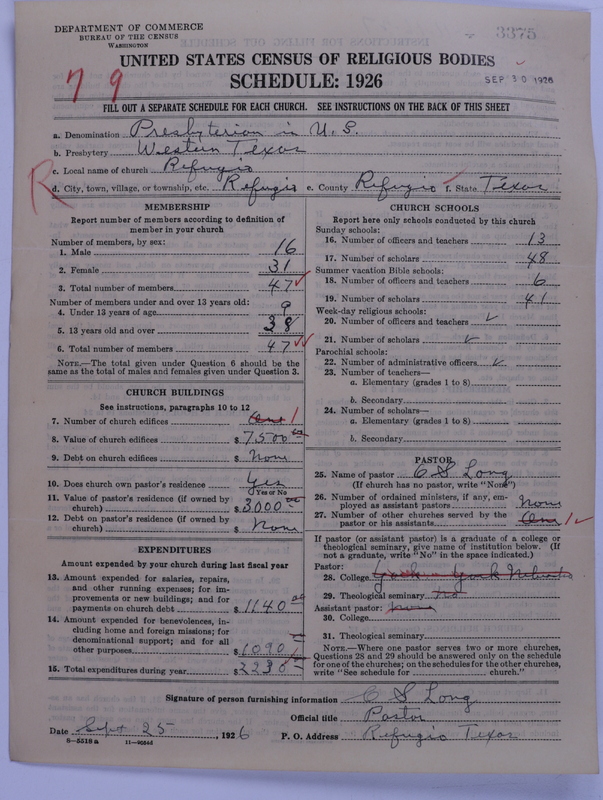 DEPARTMENT OF COMMERCE
BUREAU OF THE CENSUS
WASHINGTON
3375
UNITED STATES CENSUS OF RELIGIOUS BODIES
SCHEDULE: 1926
SEP 30 1926
7 9
FILL OUT A SEPARATE SCHEDULE FOR EACH CHURCH. SEE INSTRUCTIONS ON THE BACK OF THIS SHEET
a. Denomination Presbyterian in U.S.
b. Presbytery Western Texas
c. Local name of church Refugio
R
d. City, town, village, or township, etc. Refugio e. County Refugio f. State Texas
MEMBERSHIP
Report number of members according to definition of member in your church
Number of members, by sex:
1. Male 16
2. Female 31
3. Total number of members 47
Number of members under and over 13 years old:
4. Under 13 years of age 9
5. 13 years old and over 38
6. Total number of members 47
NOTE.—The total given under Question 6 should be
same as the total of males and females given under Question 3.
CHURCH BUILDINGS
See instructions, paragraphs 10 to 12
7. Number of church edifices One 1
8. Value of church edifices $ 7500 00
9. Debt on church edifices $ None
10. Does church own pastor's residence Yes
Yes or No
11. Value of pastor's residence (if owned by
church) $ 3000 00
12. Debt on pastor's residence (if owned by
church) $ None
EXPENDITURES
Amount expended by your church during last fiscal year
13. Amount expended for salaries, repairs,
and other running expenses; for im-
provements or new buildings; and for
payments on church debt $ 1140 00
14. Amount expended for benevolences, in-
cluding home and foreign missions; for
denominational support; and for all
other purposes $ 1090
15. Total expenditures during year $ 2230
CHURCH SCHOOLS
Report here only schools conducted by this church
Sunday schools:
16. Number of officers and teachers 13
17. Number of scholars 48
Summer vacation Bible schools:
18. Number of officers and teachers 6
19. Number of scholars 41
Week-day religious schools:
20. Number of officers and teachers
21. Number of scholars
Parochial schools:
22. Number of administrative officers
23. Number of teachers—
a. Elementary (grades 1 to 8)
b. Secondary
24. Number of scholars—
a. Elementary (grades 1 to 8)
b. Secondary
PASTOR
25. Name of pastor C S Long
(If church has no pastor, write "None")
26. Number of ordained ministers, if any, em-
ployed as assistant pastors None
27. Number of other churches served by the
pastor or his assistants One 1
If pastor (or assistant pastor) is a graduate of a college or
theological seminary, give name of institution below. (If
not a graduate, write "No" in the space indicated.)
Pastor:
28. College York Nebraska
29. Theological seminary no
Assistant pastor: none
30. College
31. Theological seminary
NOTE.—Where one pastor serves two or more churches,
Questions 28 and 29 should be answered only on the schedule
for one of the churches; on the schedules for the other churches,
write "See schedule for church."
Signature of person furnishing information C S Long
Official title Pastor
Date Sept 25, 1926 P. O. Address Refugio Texas
8—5518a 11—90646